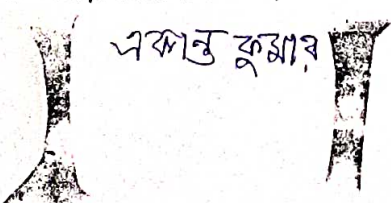 একান্ত কুমার